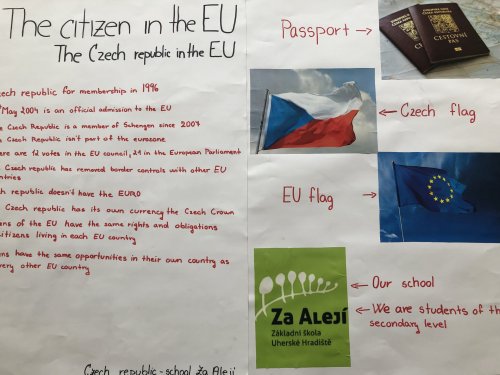 The citizen in the EU
The Czech republic in the EU
zech republic for membership in 1996
May 2004 is an official admission to the EU
e Czech Republic is a member of Schengen since 2007
Czech Republic isn't part of the eurozone
ere are 12 votes in the EU council, 21 in the European Parliament
Czech republic has removed border controls with other EU
ntries
ch republic doesn't have the EURO
Czech republic has its own currency the Czech Crown
ens of the EU have the same rights and obligations
citizens living in each EU country
ens have the same opportunities in their own country as
very other EU country
Czech republic - school Za Alejí
Passport →
CESTOVNÍ
PAS
← Czech flag
EU flag →
Za Alejí
Základní škola
Uherské Hradiště
← Our school
← We are students of the
secondary level